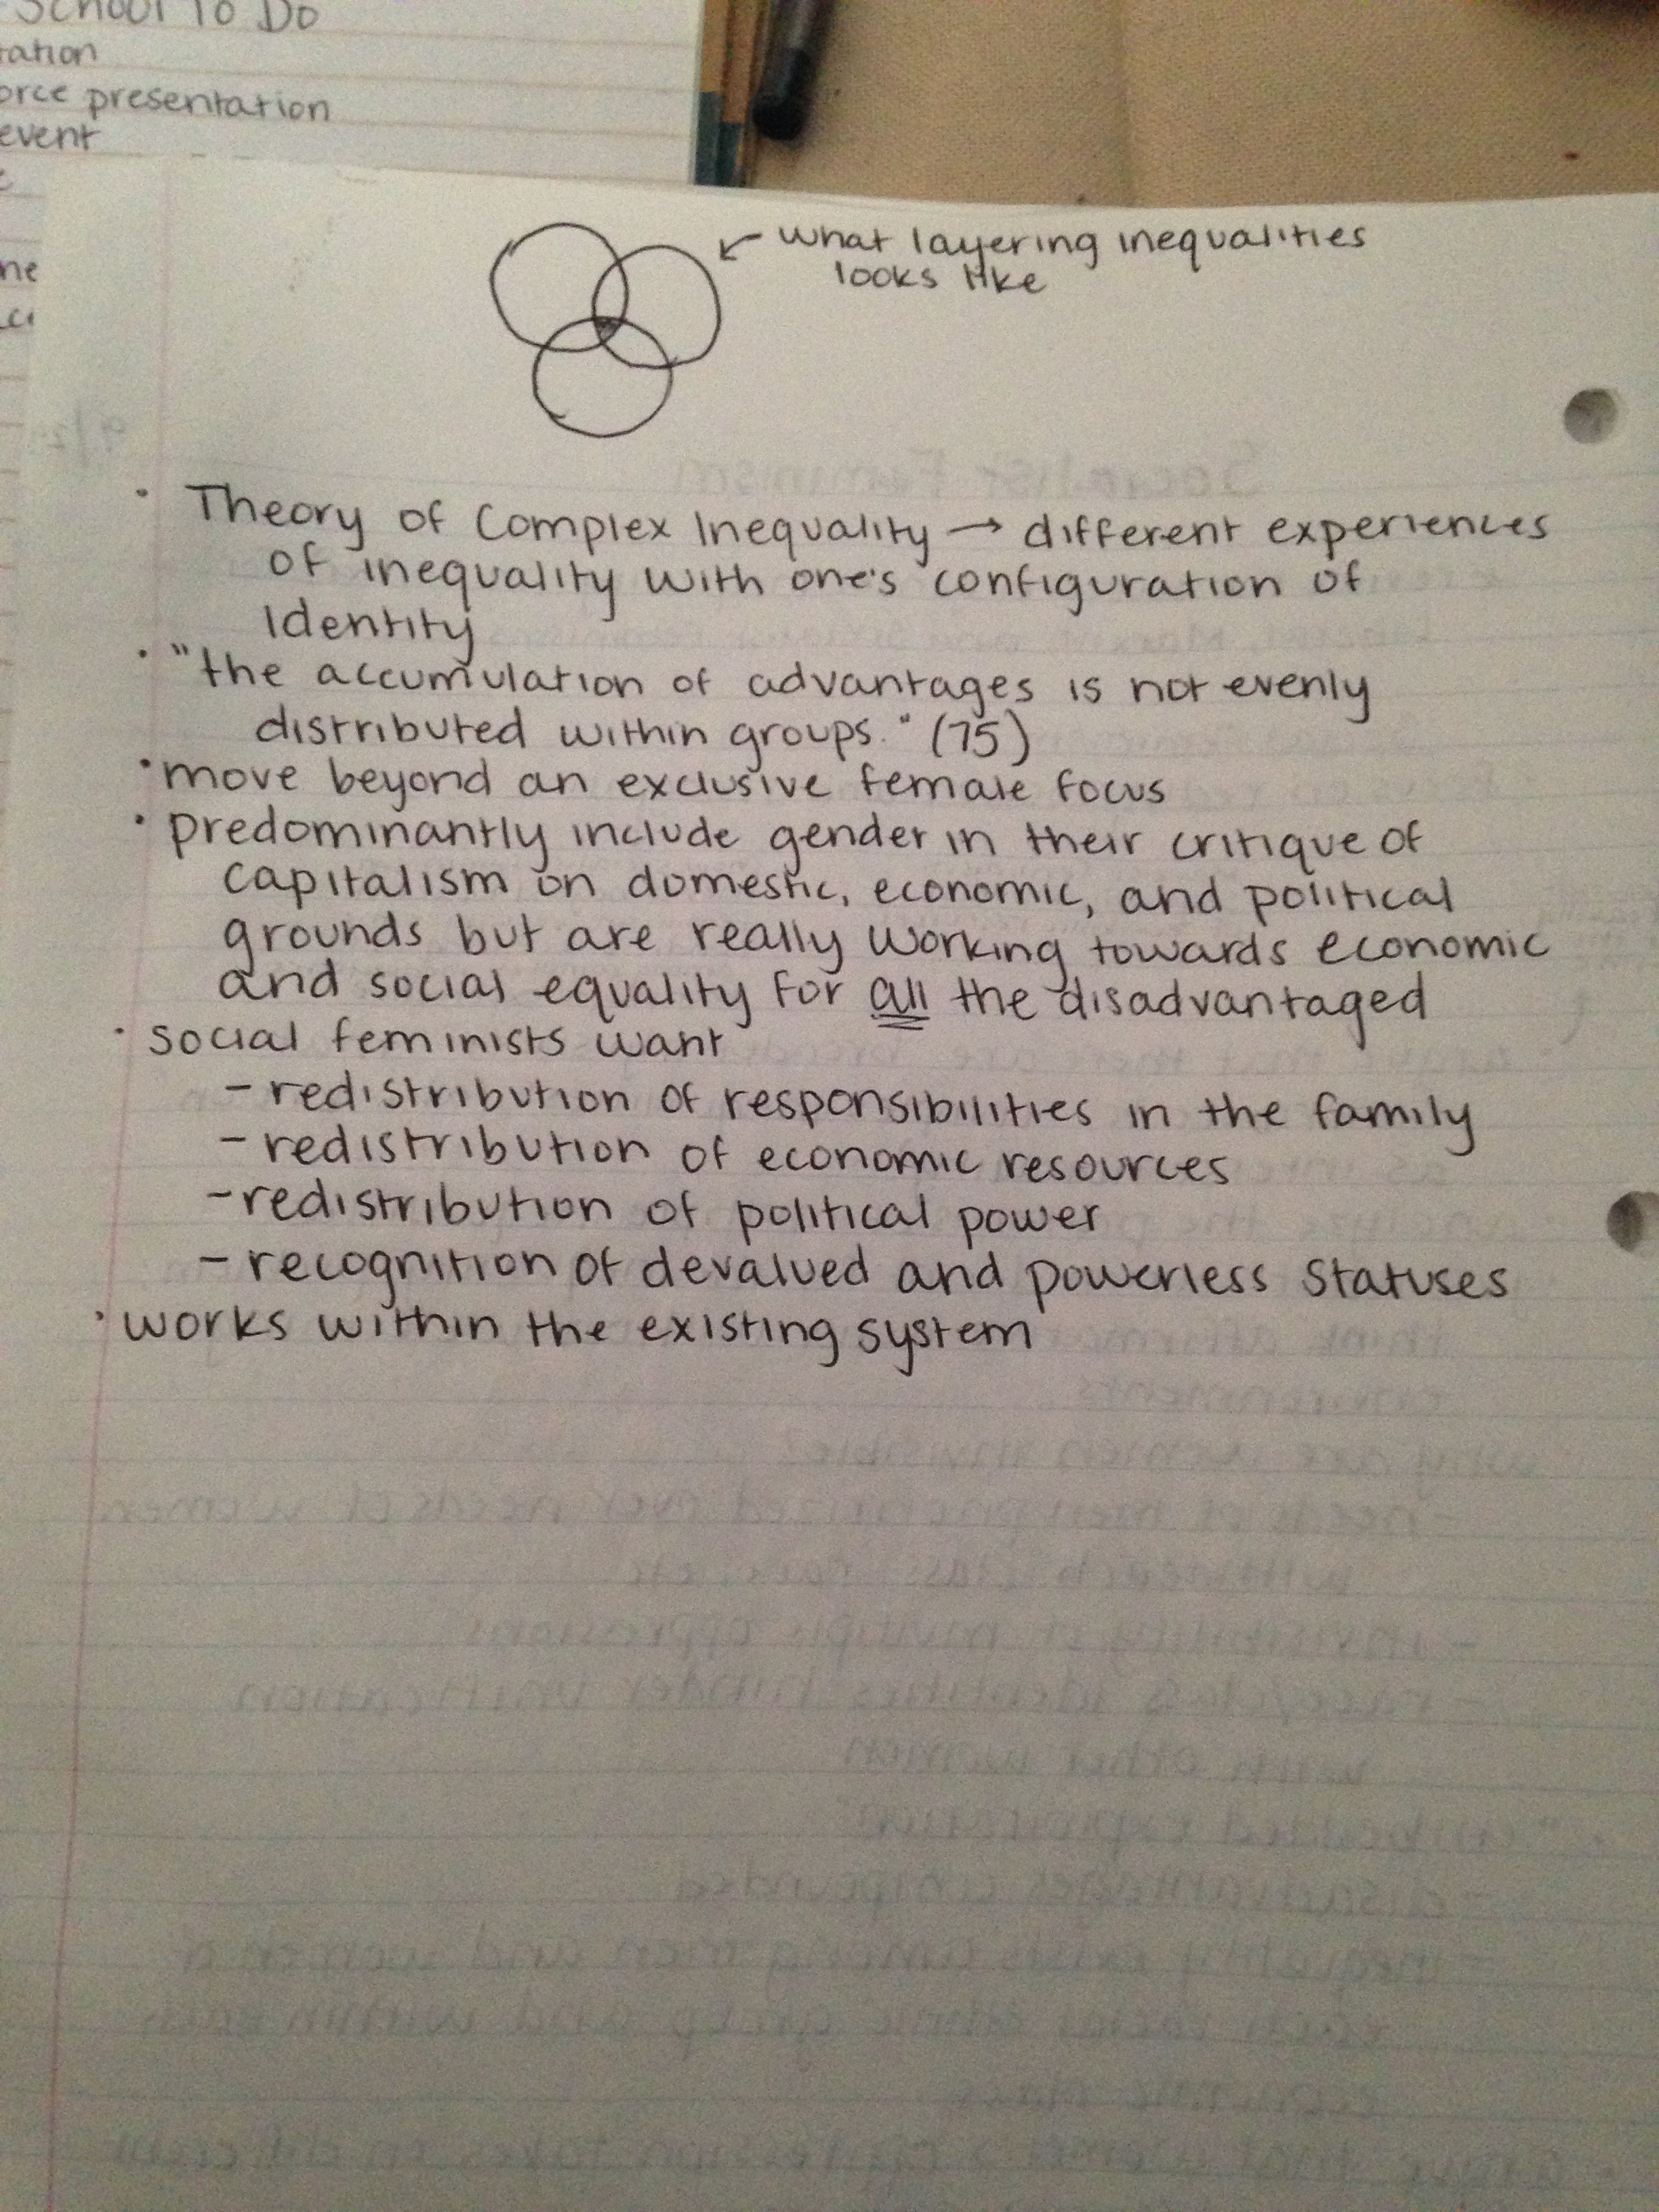 School To Do
presentation
event
what layering inequalities
looks like
• Theory of Complex Inequality → different experiences
of inequality with one's configuration of
Identity
• "the accumulation of advantages is not evenly
distributed within groups." (75)
• move beyond an exclusive female focus
• predominantly include gender in their critique of
capitalism on domestic, economic, and political
grounds but are really working towards economic
and social equality for all the disadvantaged
• social feminists want
- redistribution of responsibilities in the family
- redistribution of economic resources
- redistribution of political power
- recognition of devalued and powerless statuses
• works within the existing system